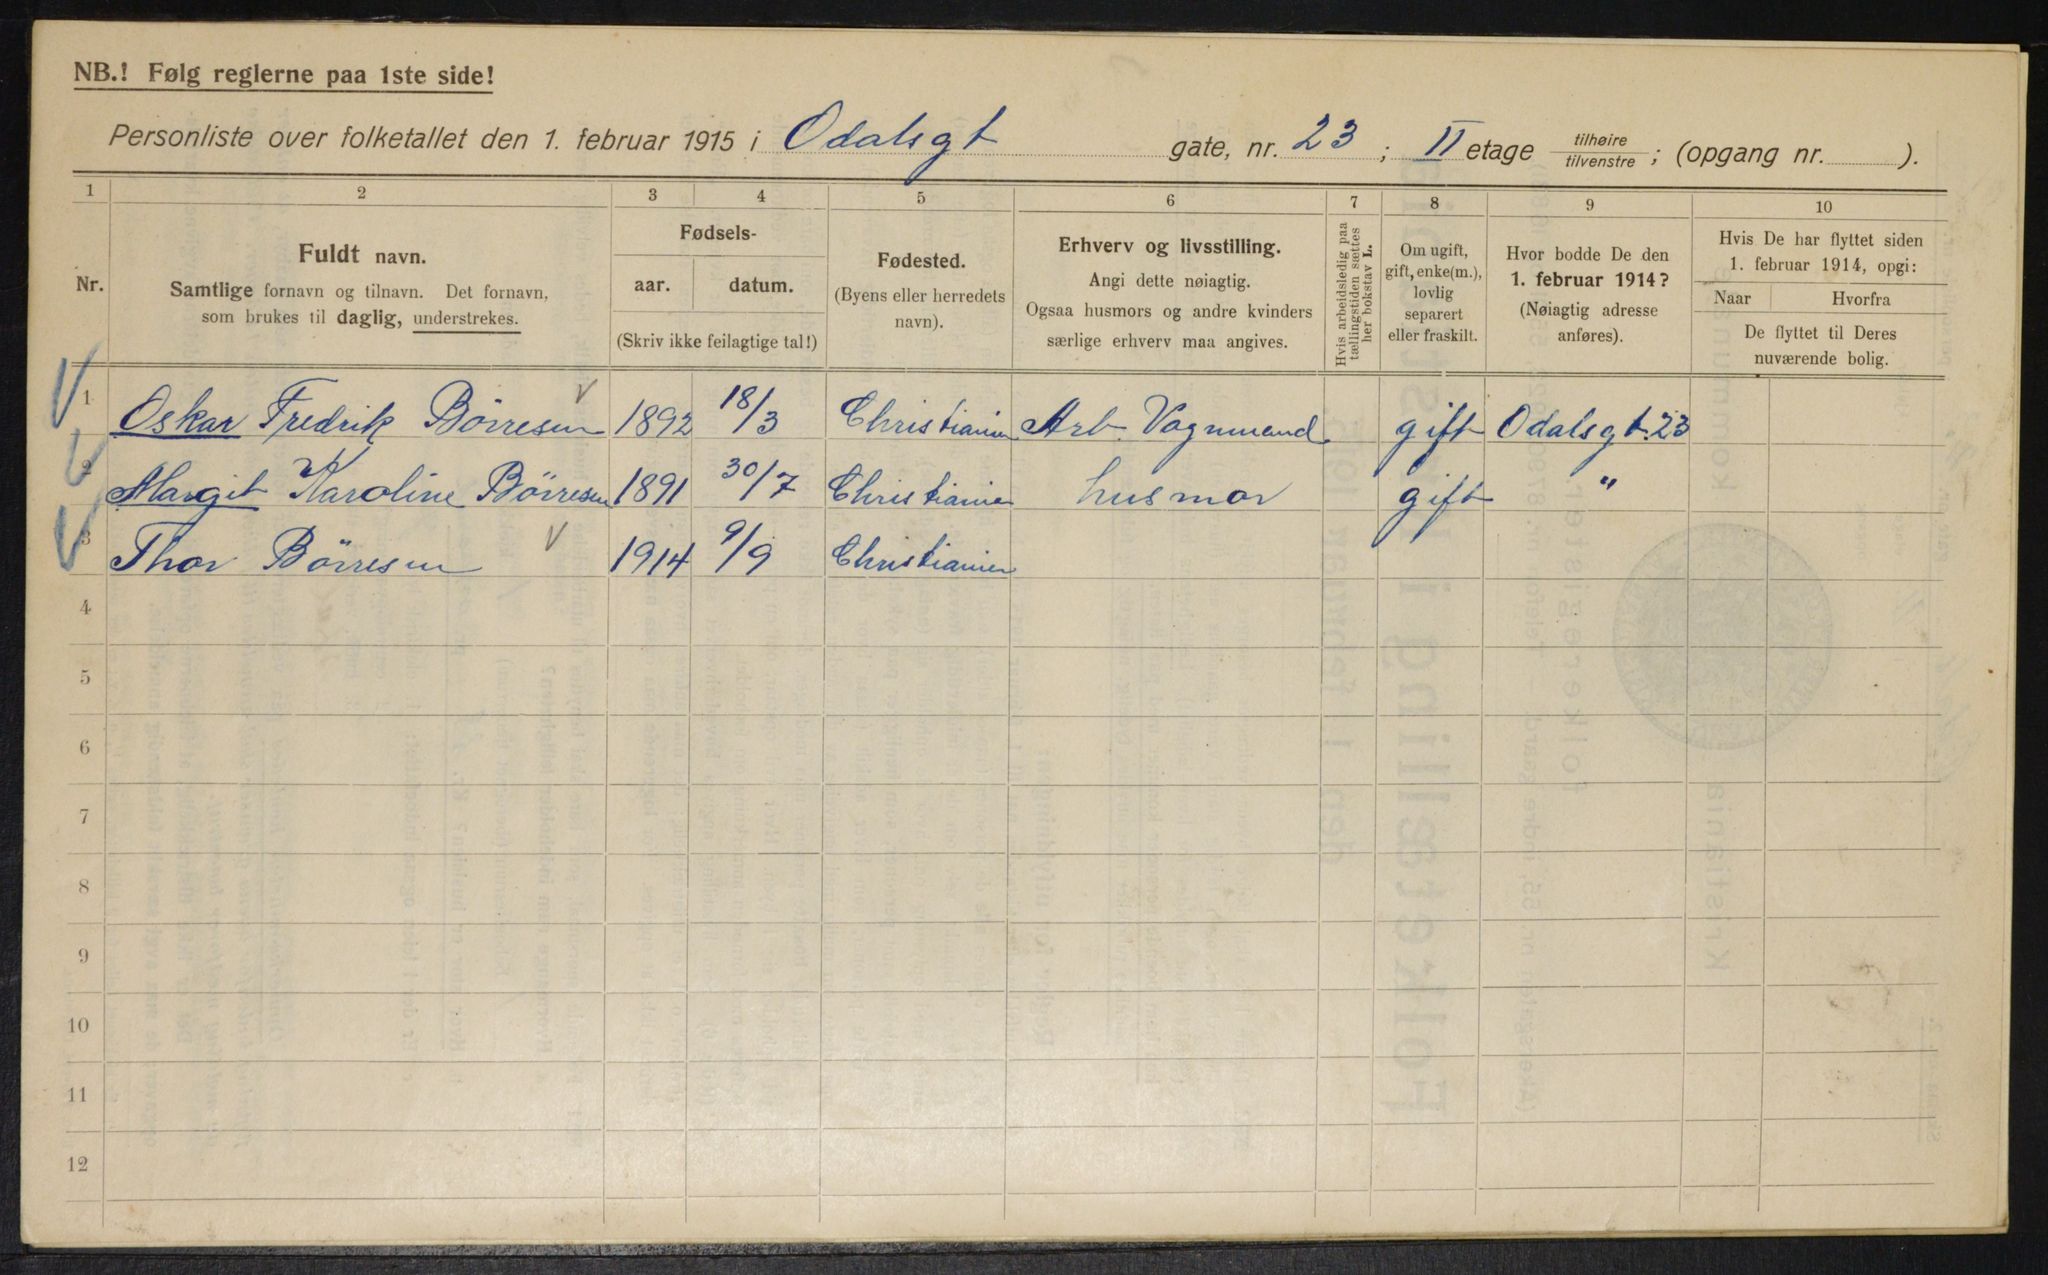 NB.! Følg reglerne paa 1ste side!
Personliste over folketallet den 1. februar 1915 i Odalsgt gate, nr. 23 ; II etage tilhøire / tilvenstre ; (opgang nr. ).
1 2 3 4 5 6 7 8 9 10
Nr.
Fuldt navn.
Samtlige fornavn og tilnavn. Det fornavn,
som brukes til daglig, understrekes.
Fødsels-
aar. datum.
(Skriv ikke feilagtige tal!)
Fødested.
(Byens eller herredets
navn).
Erhverv og livsstilling.
Angi dette nøiagtig.
Ogsaa husmors og andre kvinders
særlige erhverv maa angives.
Hvis arbeidsledig paa
tællingstiden sættes
her bokstav L.
Om ugift,
gift, enke(m.),
lovlig
separert
eller fraskilt.
Hvor bodde De den
1. februar 1914?
(Nøiagtig adresse
anføres).
Hvis De har flyttet siden
1. februar 1914, opgi:
Naar Hvorfra
De flyttet til Deres
nuværende bolig.
1 Oskar Fredrik Börresen 1892 18/3 Christiania Arb. Vognmand gift Odalsgt. 23
2 Margit Karoline Börresen 1891 30/7 Christiania husmor gift "
3 Thor Börresen 1914 9/9 Christiania
4
5
6
7
8
9
10
11
12